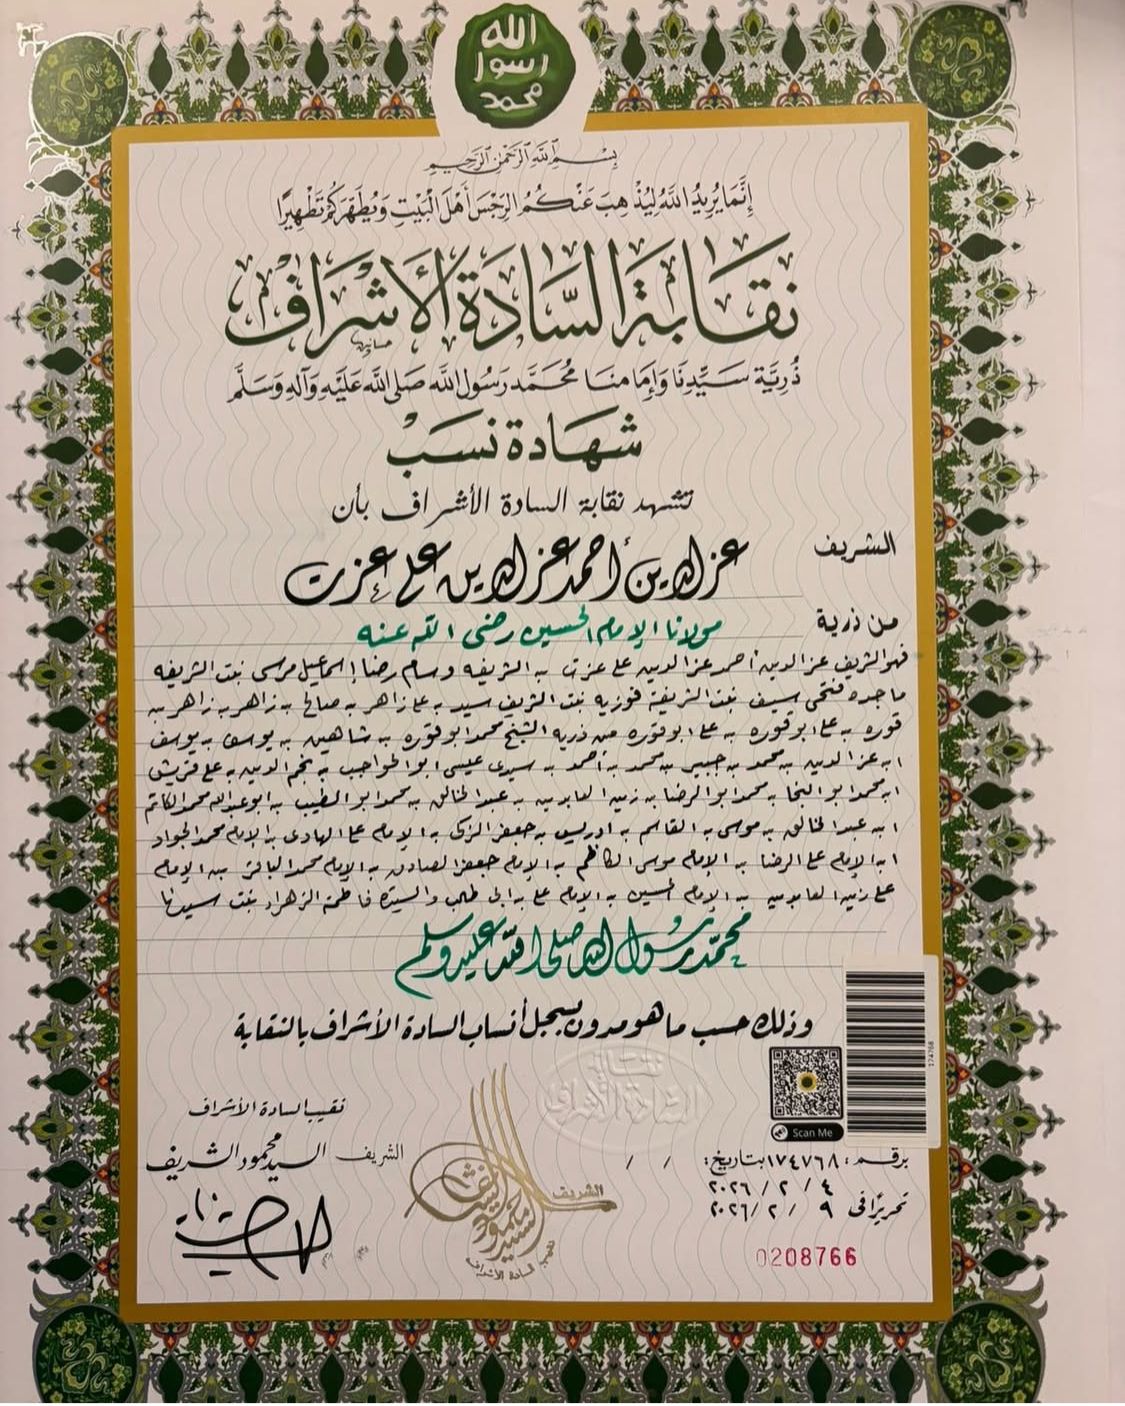 الله
رسول
محمد
بسم الله الرحمن الرحيم
إنما يريد الله ليذهب عنكم الرجس أهل البيت ويطهركم تطهيرا
نقابة السادة الأشراف
ذرية سيدنا وإمامنا محمد رسول الله صلى الله عليه وآله وسلم
شهادة نسب
تشهد نقابة السادة الأشراف بأن
الشريف عز الدين أحمد عز الدين على عزت
من ذرية مولانا الإمام الحسين رضى الله عنه
فهو الشريف عز الدين أحمد عز الدين على عزت به الشريفه وسام رضا إسماعيل مرسى بنت الشريفه
ماجده فتحى سيف بنت الشريفة فوزيه بنت الشريف سيد به على زاهر به صالح به زاهر به زاهر به
قوره به على ابوقوره به على ابوقوره من ذريه الشيخ محمد ابوقوره به شاهين به يوسف به يوسف
ابه عز الدين به محمد به جبير به محمد به أحمد به سيدى عيسى ابو الحواجب به نجم الدين به على قريش
ابه محمد ابو النجا به محمد ابو الرضا به زين العابدين به عبد الخالق به محمد ابو الطيب به ابوعبدالله محمد الكاتم
ابه عبد الخالق به موسى به القاسم به ادريس به جعفر الزكى به الإمام على الهادى به الإمام محمد الجواد
ابه الإمام على الرضا به الإمام موسى الكاظم به الإمام جعفر الصادق به الإمام محمد الباقر به الإمام
على زين العابدين به الإمام الحسين به الإمام على به ابى طالب والسيدة فاطمة الزهراء بنت سيدنا
محمد رسول الله صلى الله عليه وسلم
وذلك حسب ما هو مدون بسجل أنساب السادة الأشراف بالنقابة
174768
Scan Me
نقابة
السادة الأشراف
برقم: ١٧٤٧٦٨ بتاريخ: / /
٤ / ٢ / ٢٠٢٦
تحريرًا فى ٩ / ٢ / ٢٠٢٦
0208766
نقيب السادة الأشراف
الشريف السيد محمود الشريف
الشريف
السيد محمود
نقيب السادة الأشراف